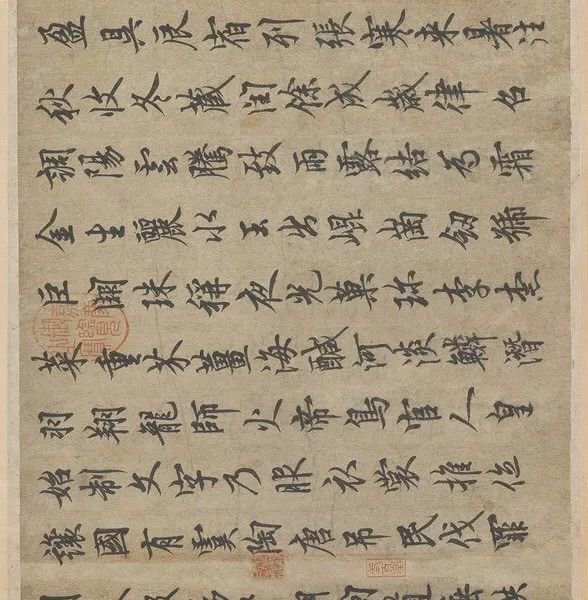 盈昃辰宿列張寒来暑往
秋收冬藏閏餘成歲律召
調陽雲騰致雨露結為霜
金生麗水玉出崐崗劔號
巨闕珠稱夜光菓珎李柰
菜重芥薑海鹹河淡鱗潛
羽翔龍師火帝鳥官人皇
始制文字乃服衣裳推位
讓國有虞陶唐吊民伐罪